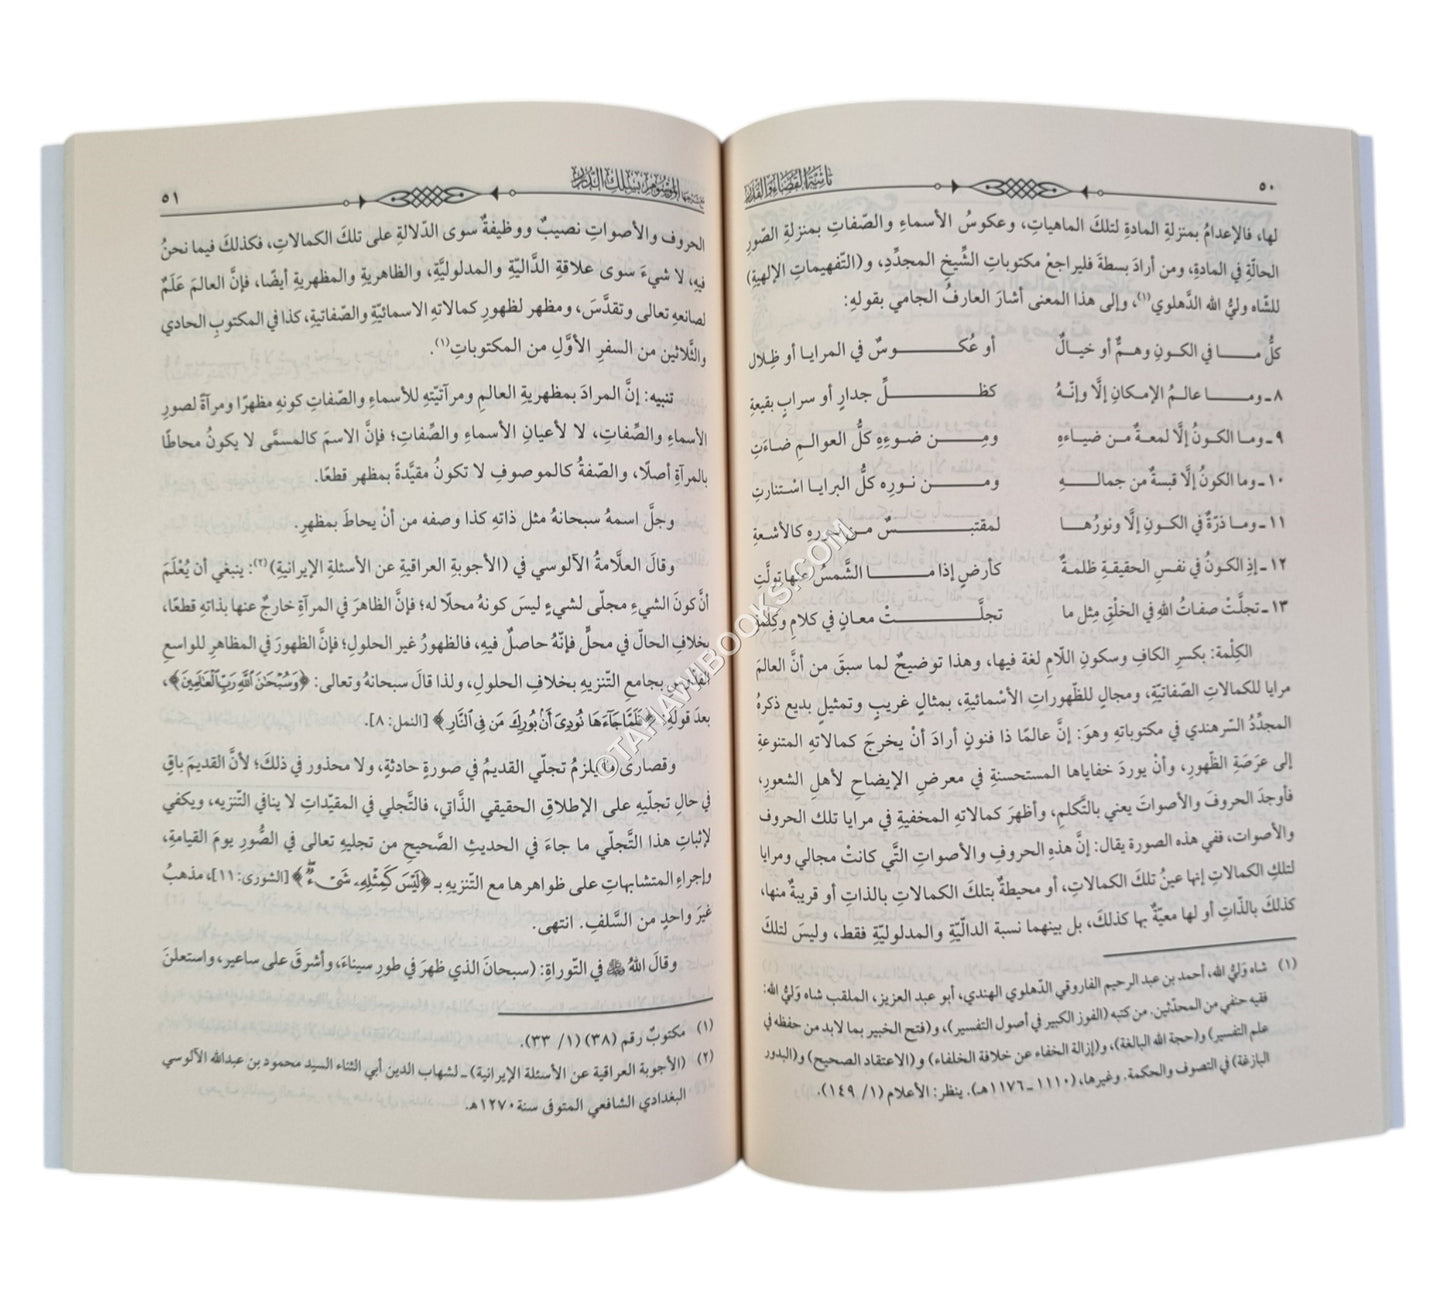 ٥٠
تائية القضاء والقدر
لها، فالإعدامُ بمنزلةِ المادةِ لتلكَ الماهياتِ، وعكوسُ الأسماءِ والصّفاتِ بمنزلةِ الصّورِ
الحالّةِ في المادةِ، ومن أرادَ بسطةَ فليراجعْ مكتوباتِ الشّيخِ المجدِّدِ، و(التّفهيماتِ الإلهيةِ)
للشّاه وليُّ الله الدَّهلوي(١)، وإلى هذا المعنى أشارَ العارفُ الجامي بقولهِ:
كلُّ مـا في الكونِ وهمٌ أو خيالٌ أو عُكوسٌ في المرايا أو ظِلال
٨ـ ومـا عالـمُ الإمكانِ إلّا وإنّهُ كظلِّ جدارٍ أو سرابٍ بقيعةِ
٩ـ وما الكونُ إلّا لمعةٌ من ضياءهِ ومِن ضوءِهِ كلُّ العوالمِ ضاءَتِ
١٠ـ وما الكونُ إلّا قبسةٌ من جمالهِ ومن نورِه كلُّ البرايا اسْتنارتِ
١١ـ وما ذرّةٌ في الكونِ إلّا ونورُها لمقتبسٌ من نورهِ كالأشعةِ
١٢ـ إذِ الكونُ في نفسِ الحقيقةِ ظلمةٌ كأرضٍ إذا ما الشَّمسُ عنها تولَّتِ
١٣ـ تجلَّتْ صفاتُ اللهِ في الخلْقِ مثل ما تجلَّتْ معانٍ في كلامٍ وكِلْمَةِ
الكِلْمة: بكسرِ الكافِ وسكونِ اللّامِ لغة فيها، وهذا توضيحٌ لما سبقَ من أنَّ العالمَ
مرايا للكمالاتِ الصّفاتيّةِ، ومجالٍ للظّهوراتِ الأسْمائيةِ، بمثالٍ غريبٍ وتمثيلٍ بديع ذكرهُ
المجدِّدُ السّرهندي في مكتوباتهِ وهوَ: إنَّ عالمًا ذا فنونٍ أرادَ أنْ يخرجَ كمالاتهِ المتنوعةِ
إلى عرَصَةِ الظّهورِ، وأنْ يوردَ خفاياها المستحسنةِ في معرضِ الإيضاحِ لأهلِ الشعورِ،
فأوجدَ الحروفَ والأصواتَ يعني بالتَّكلمِ، وأظهرَ كمالاتهِ المخفيةِ في مرايا تلك الحروف
والأصوات، ففي هذه الصورة يقال: إنَّ هذهِ الحروفِ والأصواتِ التَّي كانتْ مجالي ومرايا
لتلكِ الكمالاتِ إنها عينُ تلكَ الكمالاتِ، أو محيطةٌ بتلكَ الكمالاتِ بالذاتِ أو قريبةٌ منها،
كذلكَ بالذّاتِ أو لها معيّةٌ بها كذلكَ، بل بينهما نسبة الداليّةِ والمدلوليّةِ فقط، وليسَ لتلكَ
(١) شاه وَليُّ الله، أحمد بن عبد الرحيم الفاروقي الدّهلوي الهندي، أبو عبد العزيز، الملقب شاه وَليُّ الله:
فقيه حنفي من المحدّثين. من كتبه (الفوز الكبير في أصول التفسير)، و(فتح الخبير بما لابد من حفظه في
علم التفسير) و(حجة الله البالغة)، و(إزالة الخفاء عن خلافة الخلفاء) و(الاعتقاد الصحيح) و(البدور
البازغة) في التصوف والحكمة. وغيرها، (١١١٠ ـ ١١٧٦هـ). ينظر: الأعلام (١/ ١٤٩).
الموسوم بسلك الدرر
٥١
الحروف والأصواتِ نصيبٌ ووظيفةٌ سوى الدّلالةِ على تلكَ الكمالاتِ، فكذلكَ فيما نحنُ
فيهِ، لا شيءَ سوى علاقةِ الدَّاليّةِ والمدلوليَّةِ، والظاهريةِ والمظهريةِ أيضًا، فإنَّ العالمَ عَلَمٌ
لصانعهِ تعالى وتقدَّسَ، ومظهر لظهورِ كمالاتهِ الاسمائيّةِ والصّفاتيةِ، كذا في المكتوبِ الحادي
والثَّلاثين من السفرِ الأوَّلِ من المكتوباتِ(١).
تنبيه: إنَّ المرادَ بمظهريةِ العالمِ ومرآتيّتهِ للأسماءِ والصّفاتِ كونهِ مظهرًا ومرآةً لصورِ
الأسماءِ والصِّفاتِ، لا لأعيانِ الأسماءِ والصِّفاتِ؛ فإنَّ الاسمَ كالمسمَّى لا يكونُ محاطًا
بالمرآةِ أصلًا، والصّفةُ كالموصوفِ لا تكونُ مقيَّدةً بمظهر قطعًا.
وجلَّ اسمهُ سبحانهُ مثل ذاتهِ كذا وصفه من أنْ يحاطَ بمظهرِ.
وقالَ العلَّامةُ الآلوسي في (الأجوبةِ العراقيةِ عن الأسئلةِ الإيرانيةِ)(٢): ينبغي أن يُعْلَمَ
أنَّ كونَ الشيءِ مجلّى لشيءٍ ليسَ كونهُ محلًا له؛ فإنَّ الظاهرَ في المرآةِ خارجٌ عنها بذاتهِ قطعًا،
بخلافِ الحال في محلٍّ فإنّهُ حاصلٌ فيهِ، فالظهورُ غير الحلولِ؛ فإنَّ الظهورَ في المظاهرِ للواسعِ
القدّوسِ بجامعِ التّنزيهِ بخلافِ الحلولِ، ولذا قالَ سبحانهُ وتعالى: ﴿وَسُبْحَٰنَ ٱللَّهِ رَبِّ ٱلْعَٰلَمِينَ﴾،
بعدَ قولهِ: ﴿فَلَمَّا جَآءَهَا نُودِىَ أَنۢ بُورِكَ مَن فِى ٱلنَّارِ﴾ [النمل: ٨].
وقصارى ما يلزمُ تجلّي القديمُ في صورةٍ حادثةٍ، ولا محذور في ذلكَ؛ لأنَّ القديمَ باقٍ
في حالِ تجلّيهِ على الإطلاقِ الحقيقي الذَّاتي، فالتَّجلي في المقيّداتِ لا ينافي التّنزيه، ويكفي
لإثباتِ هذا التَّجلي ما جاءَ في الحديثِ الصَّحيحِ من تجليهِ تعالى في الصُّورِ يومَ القيامةِ،
وإجراءِ المتشابهاتِ على ظواهرها مع التّنزيهِ بـ ﴿لَيْسَ كَمِثْلِهِۦ شَىْءٌ﴾ [الشورى: ١١]، مذهبُ
غيرَ واحدٍ من السَّلفِ. انتهى.
وقالَ اللهُ ﷻ في التّوراةِ: (سبحانَ الذي ظهرَ في طورِ سيناءَ، وأشرقَ على ساعيرِ، واستعلنَ
(١) مكتوبٌ رقم (٣٨) (١/ ٣٣).
(٢) (الأجوبة العراقية عن الأسئلة الإيرانية) ـ لشهاب الدين أبي الثناء السيد محمود بن عبدالله الآلوسي
البغدادي الشافعي المتوفى سنة ١٢٧٠هـ.
©TAHAWIBOOKS.COM